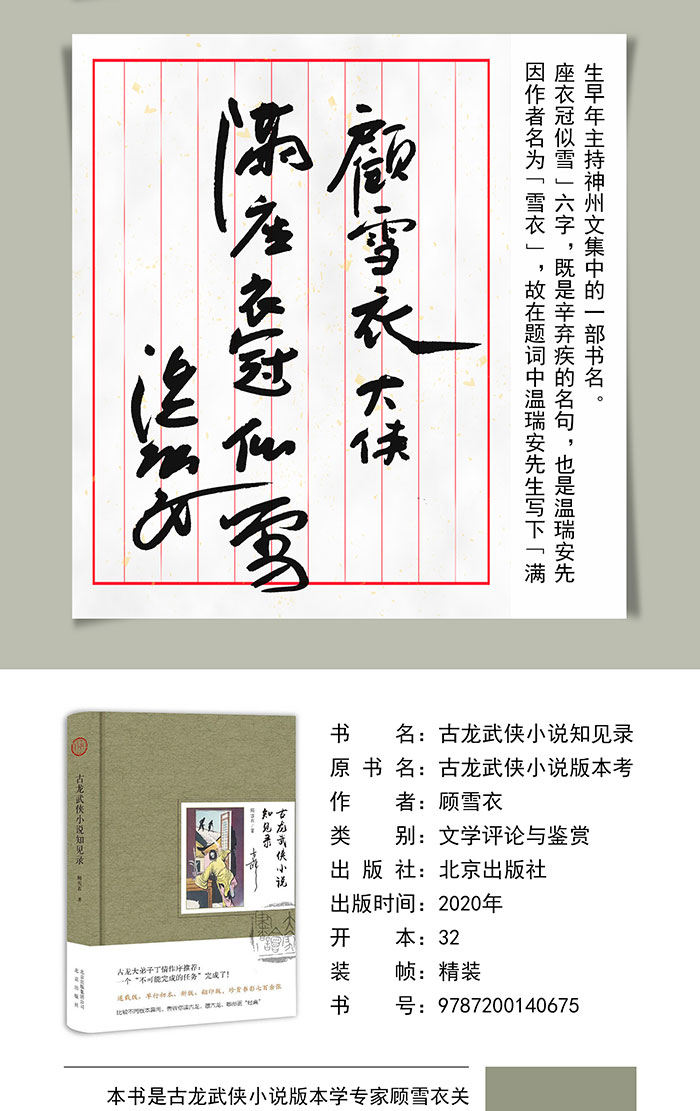 顧雪衣大俠
满座衣冠似雪
温瑞安
因作者名为「雪衣」，故在题词中温瑞安先生写下「满
座衣冠似雪」六字，既是辛弃疾的名句，也是温瑞安先
生早年主持神州文集中的一部书名。
古龙武侠小说知见录
顾雪衣 著
北京出版集团公司
北京出版社
古龙武侠小说
知见录
顾雪衣 著
古龙大弟子丁情作序推荐：
一个“不可能完成的任务”完成了！
连载版、单行初本、新版、翻印版，珍贵书影七百余张
书名：古龙武侠小说知见录
原书名：古龙武侠小说版本考
作者：顾雪衣
类别：文学评论与鉴赏
出版社：北京出版社
出版时间：2020年
开本：32
装帧：精装
书号：9787200140675
本书是古龙武侠小说版本学专家顾雪衣关